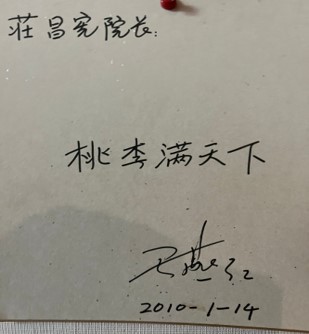 莊昌宪院长:
桃李满天下
燕红
2010-1-14